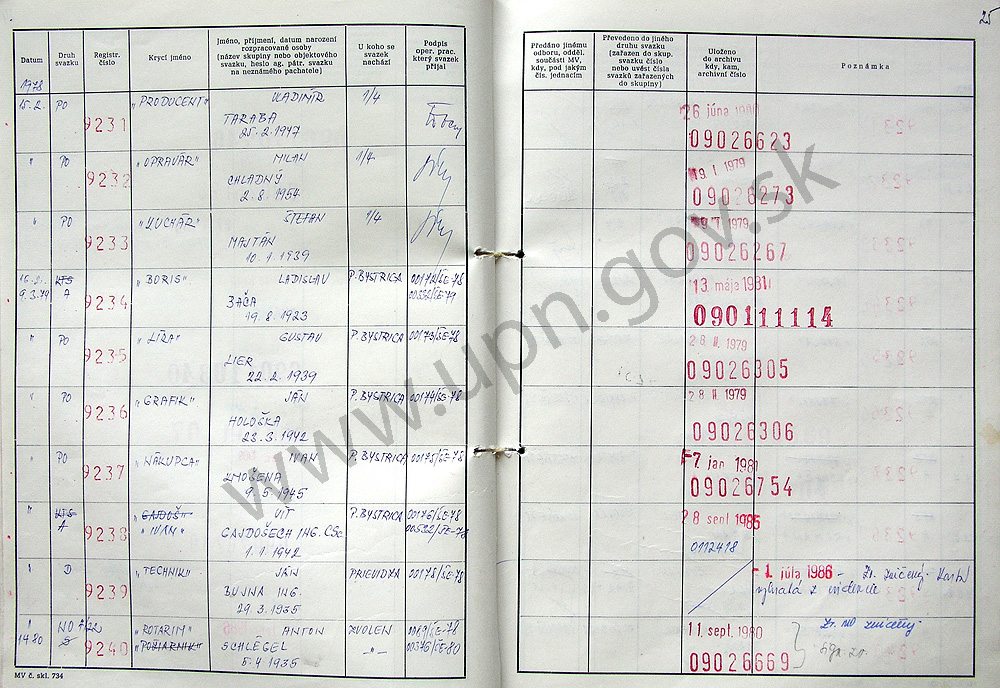 25
Datum
Druh svazku
Registr. číslo
Krycí jméno
Jméno, příjmení, datum narození
rozpracované osoby
(název skupiny nebo objektového
svazku, heslo ag. pátr. svazku
na neznámého pachatele)
U koho se
svazek
nachází
Podpis
oper. prac.
který svazek
přijal
Předáno jinému
odboru, odděl.
součásti MV,
kdy, pod jakým
čís. jednacím
Převedeno do jiného
druhu svazku
(zařazen do skup.
svazku číslo
nebo uvést čísla
svazků zařazených
do skupiny)
Uloženo
do archivu
kdy, kam,
archivní číslo
Poznámka
1978
15.2. PO 9231 „PRODUCENT" VLADIMÍR 1/4 26 júna
TARABA 09026623
25.2.1947
" PO 9232 „OPRAVÁR" MILAN 1/4 19. I 1979
CHLADNÝ 09026273
2.8.1954
" PO 9233 „KUCHÁR" ŠTEFAN 1/4 1979
MAJTÁN 09026267
10.1.1939
16.2. KTS 9234 „BORIS" LADISLAV P. BYSTRICA 00172/ŠE-78 13 mája 1981
9.3.79 A BAČA 00532/ŠE-79 090111114
19.8.1923
" PO 9235 „LÍRA" GUSTAV P. BYSTRICA 00173/ŠE-78 28 II. 1979
LIER 09026305
22.2.1939
" PO 9236 „GRAFIK" JÁN P. BYSTRICA 00174/ŠE-78 28 II 1979
HOLOŠKA 09026306
23.3.1942
" PO 9237 „NÁKUPCA" IVAN P. BYSTRICA 00175/ŠE-78 7 jan 1981
ZMOŠENA 09026754
9.5.1945
" KTS 9238 „GAJDOŠ" VÍT P. BYSTRICA 00176/ŠE-78 28 sept 1985
A „IVAN" GAJDOŠECH ING. CSc. 00532/ŠE-78 0112418
1.1.1942
" D 9239 „TECHNIK" JÁN PRIEVIDZA 00178/ŠE-78 - 1 júla 1986 - Zv. zničený. Karta
BUJNA ING. vybratá z evidencie
29.3.1935
" NO 9240 „ROTARIM" ANTON ZVOLEN 11 sept. 1980 Zv. NO zničený
1480 „POŽIARNIK" SCHLÉGEL -"- 00376/ŠE-80 09026669
5.4.1935
MV č. skl. 734
www.upn.gov.sk